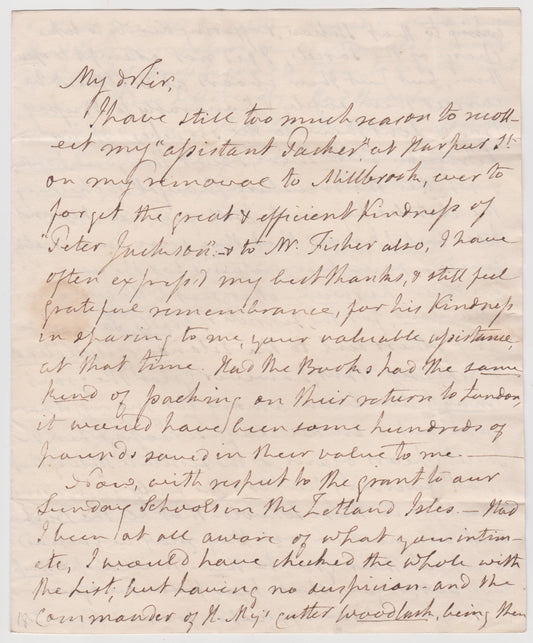 My dr Sir,
I have still too much reason to recoll-
ect my "assistant Packer" at Harpur St.
on my removal to Millbrook, ever to
forget the great & efficient Kindness of
"Peter Jackson" – & to Mr. Fisher also, I have
often express'd my best thanks, & still feel
grateful remembrance, for his Kindness
in sparing to me, your valuable assistance,
at that time. Had the Books had the same
kind of packing on their return to London,
it would have been some hundreds of
pounds saved in their value to me. —
Now, with respect to the grant to our
Sunday Schools in the Zetland Isles. – Had
I been at all aware of what you intim-
ate, I would have checked the whole with
the list; but having no suspicion – and the
Commander of H. Maj's cutter Woodlark, being then